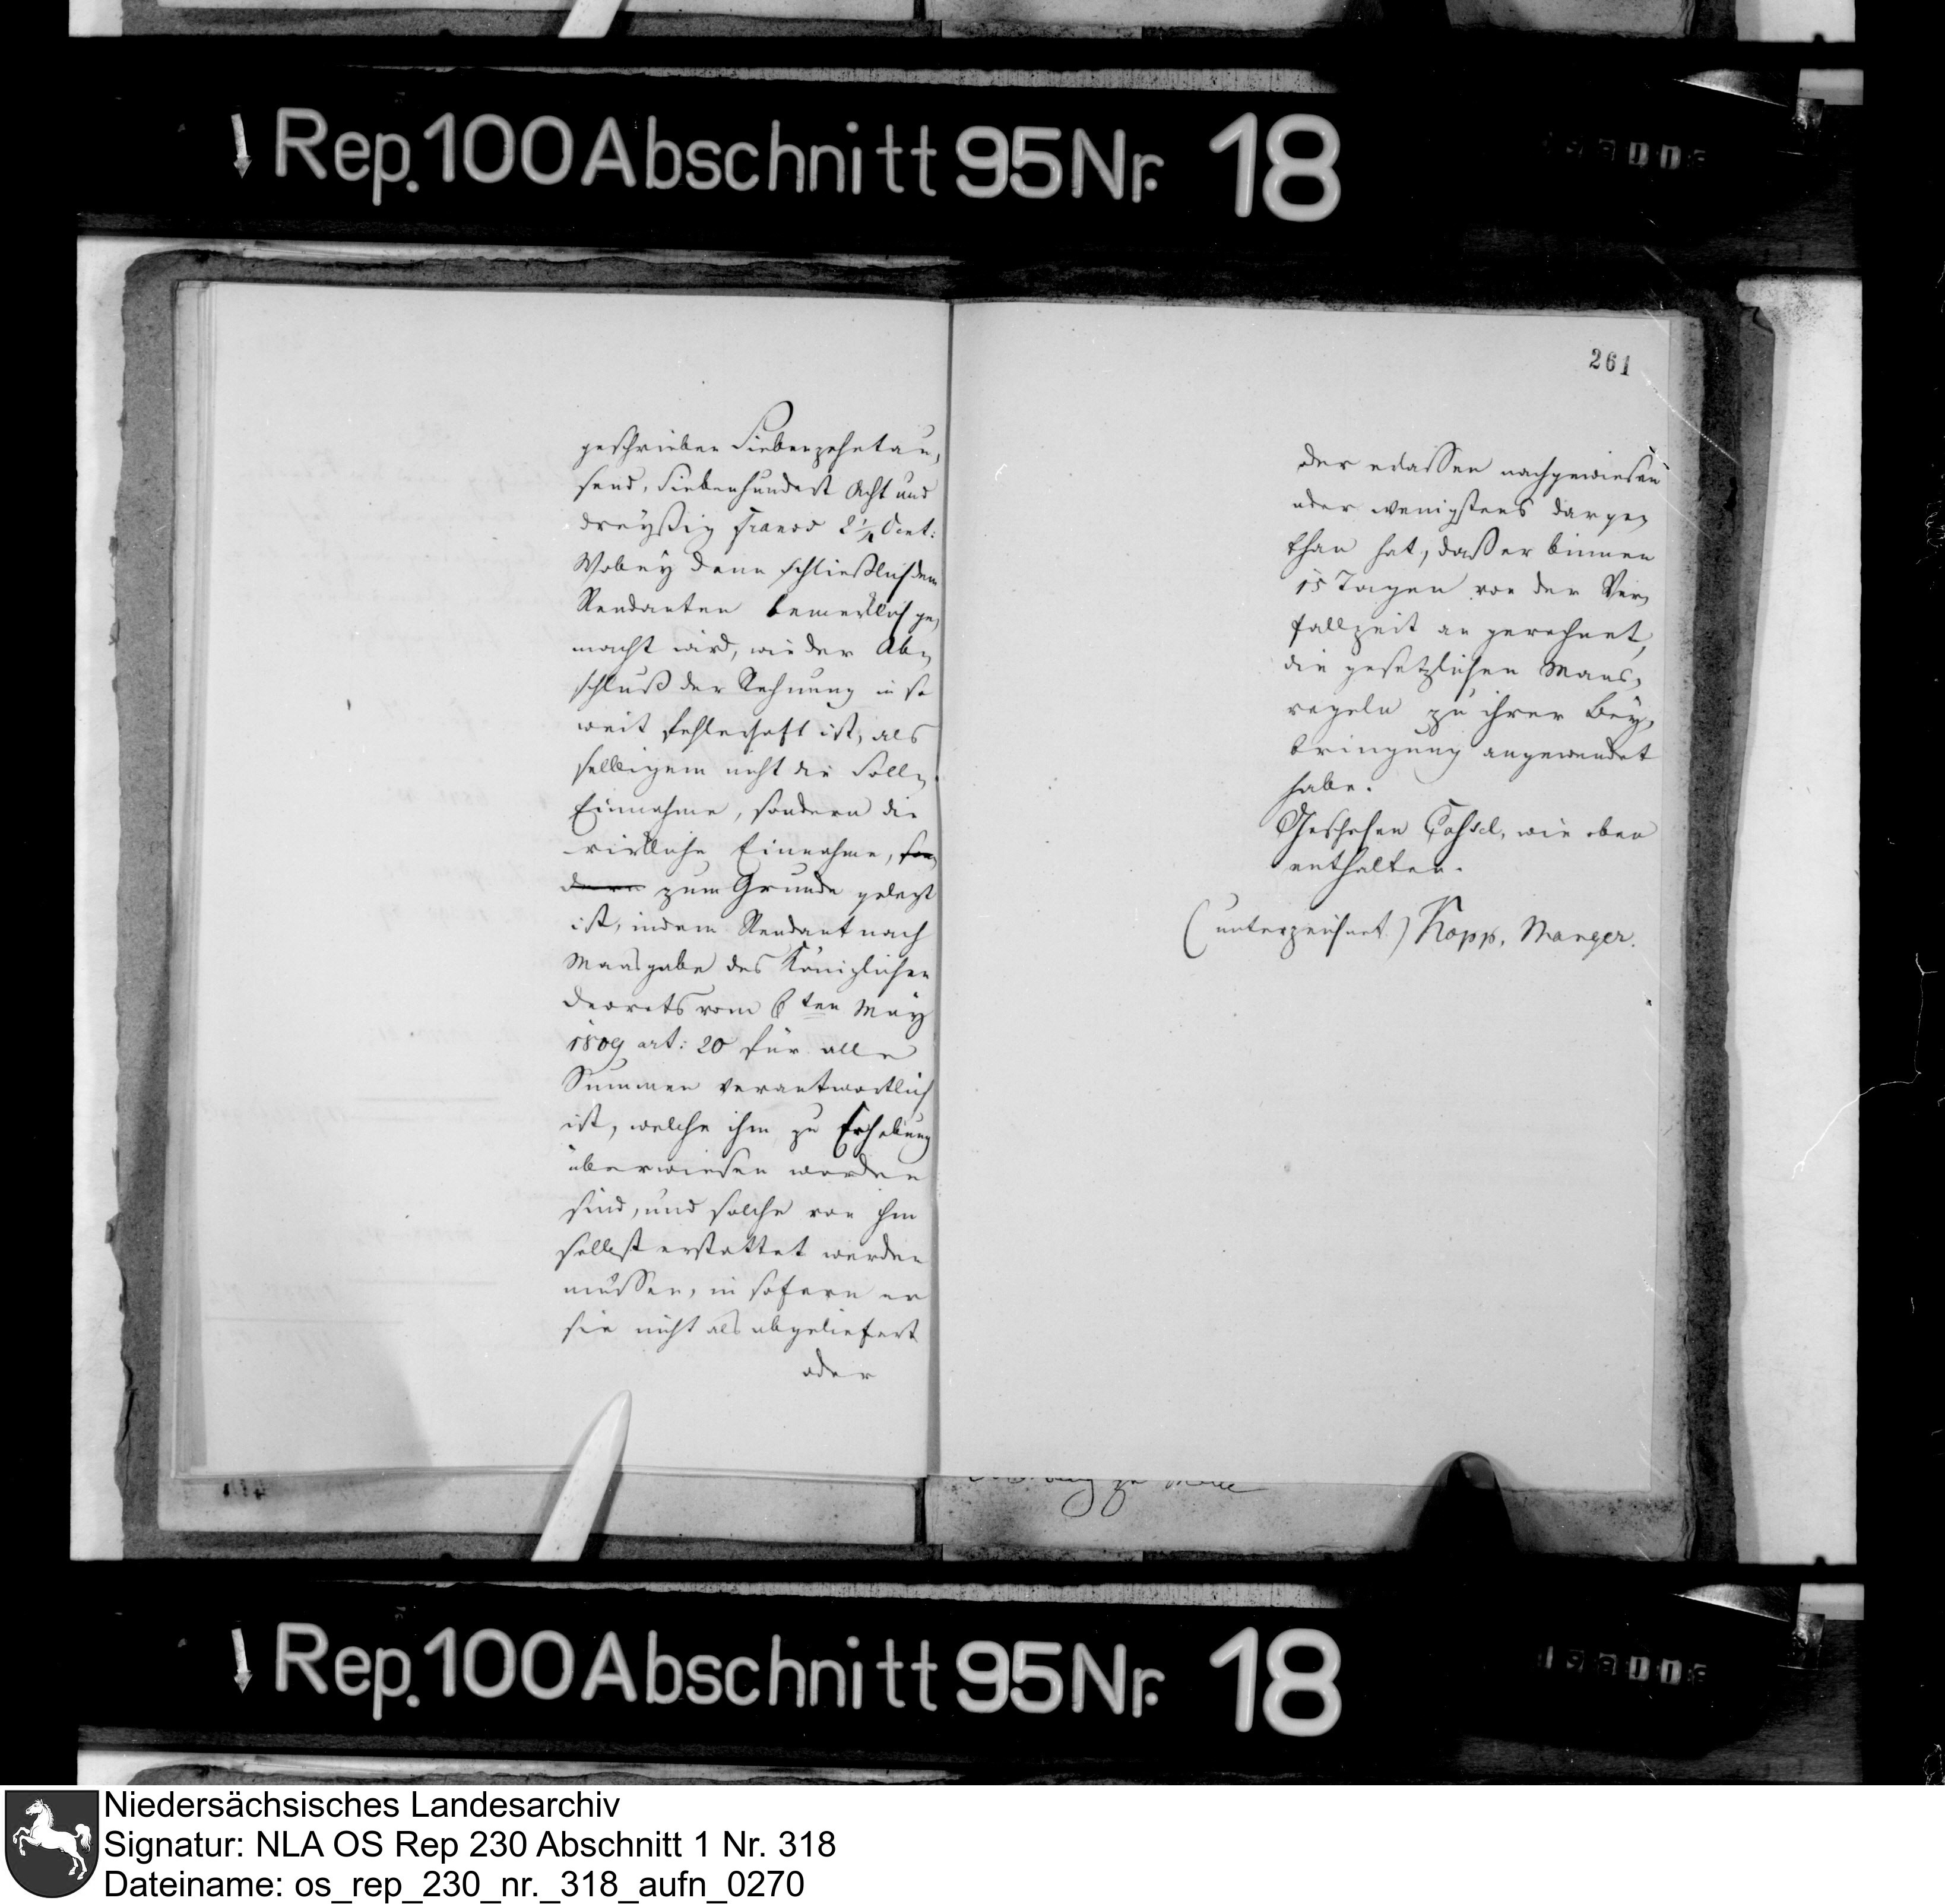 Rep. 100 Abschnitt 95 Nr. 18
geschrieben Siebenzehntau-
send, Siebenhundert Acht und
dreyßig Francs 2 1/2 Cent:
Wobey dann schließlich dem
Rendanten bemerklich ge-
macht wird, wie der Ab-
schluß der Rechnung in so
weit fehlerhaft ist, als
selbigem nicht die Soll-
Einnahme, sondern die
wirkliche Einnahme, son-
dern zum Grunde gelegt
ist, indem Rendant nach
Maasgabe des Königlichen
Decrets vom 6ten May
1809 art: 20 für alle
Summen verantwortlich
ist, welche ihm zu Erhebung
überwiesen worden
sind, und solche von ihm
selbst erstattet werden
müssen, in sofern er
sie nicht als abgeliefert
oder
261
der erlassen nachgewiesen
oder wenigstens darge-
than hat, daß er binnen
15 Tagen von der Ver-
fallzeit an gerechnet,
die gesetzlichen Maas-
regeln zu ihrer Bey-
bringung angewendet
habe.
Geschehen Cassel, wie oben
enthalten.
(unterzeichnet) Kopp, Manger.
Rep. 100 Abschnitt 95 Nr. 18
Niedersächsisches Landesarchiv
Signatur: NLA OS Rep 230 Abschnitt 1 Nr. 318
Dateiname: os_rep_230_nr._318_aufn_0270